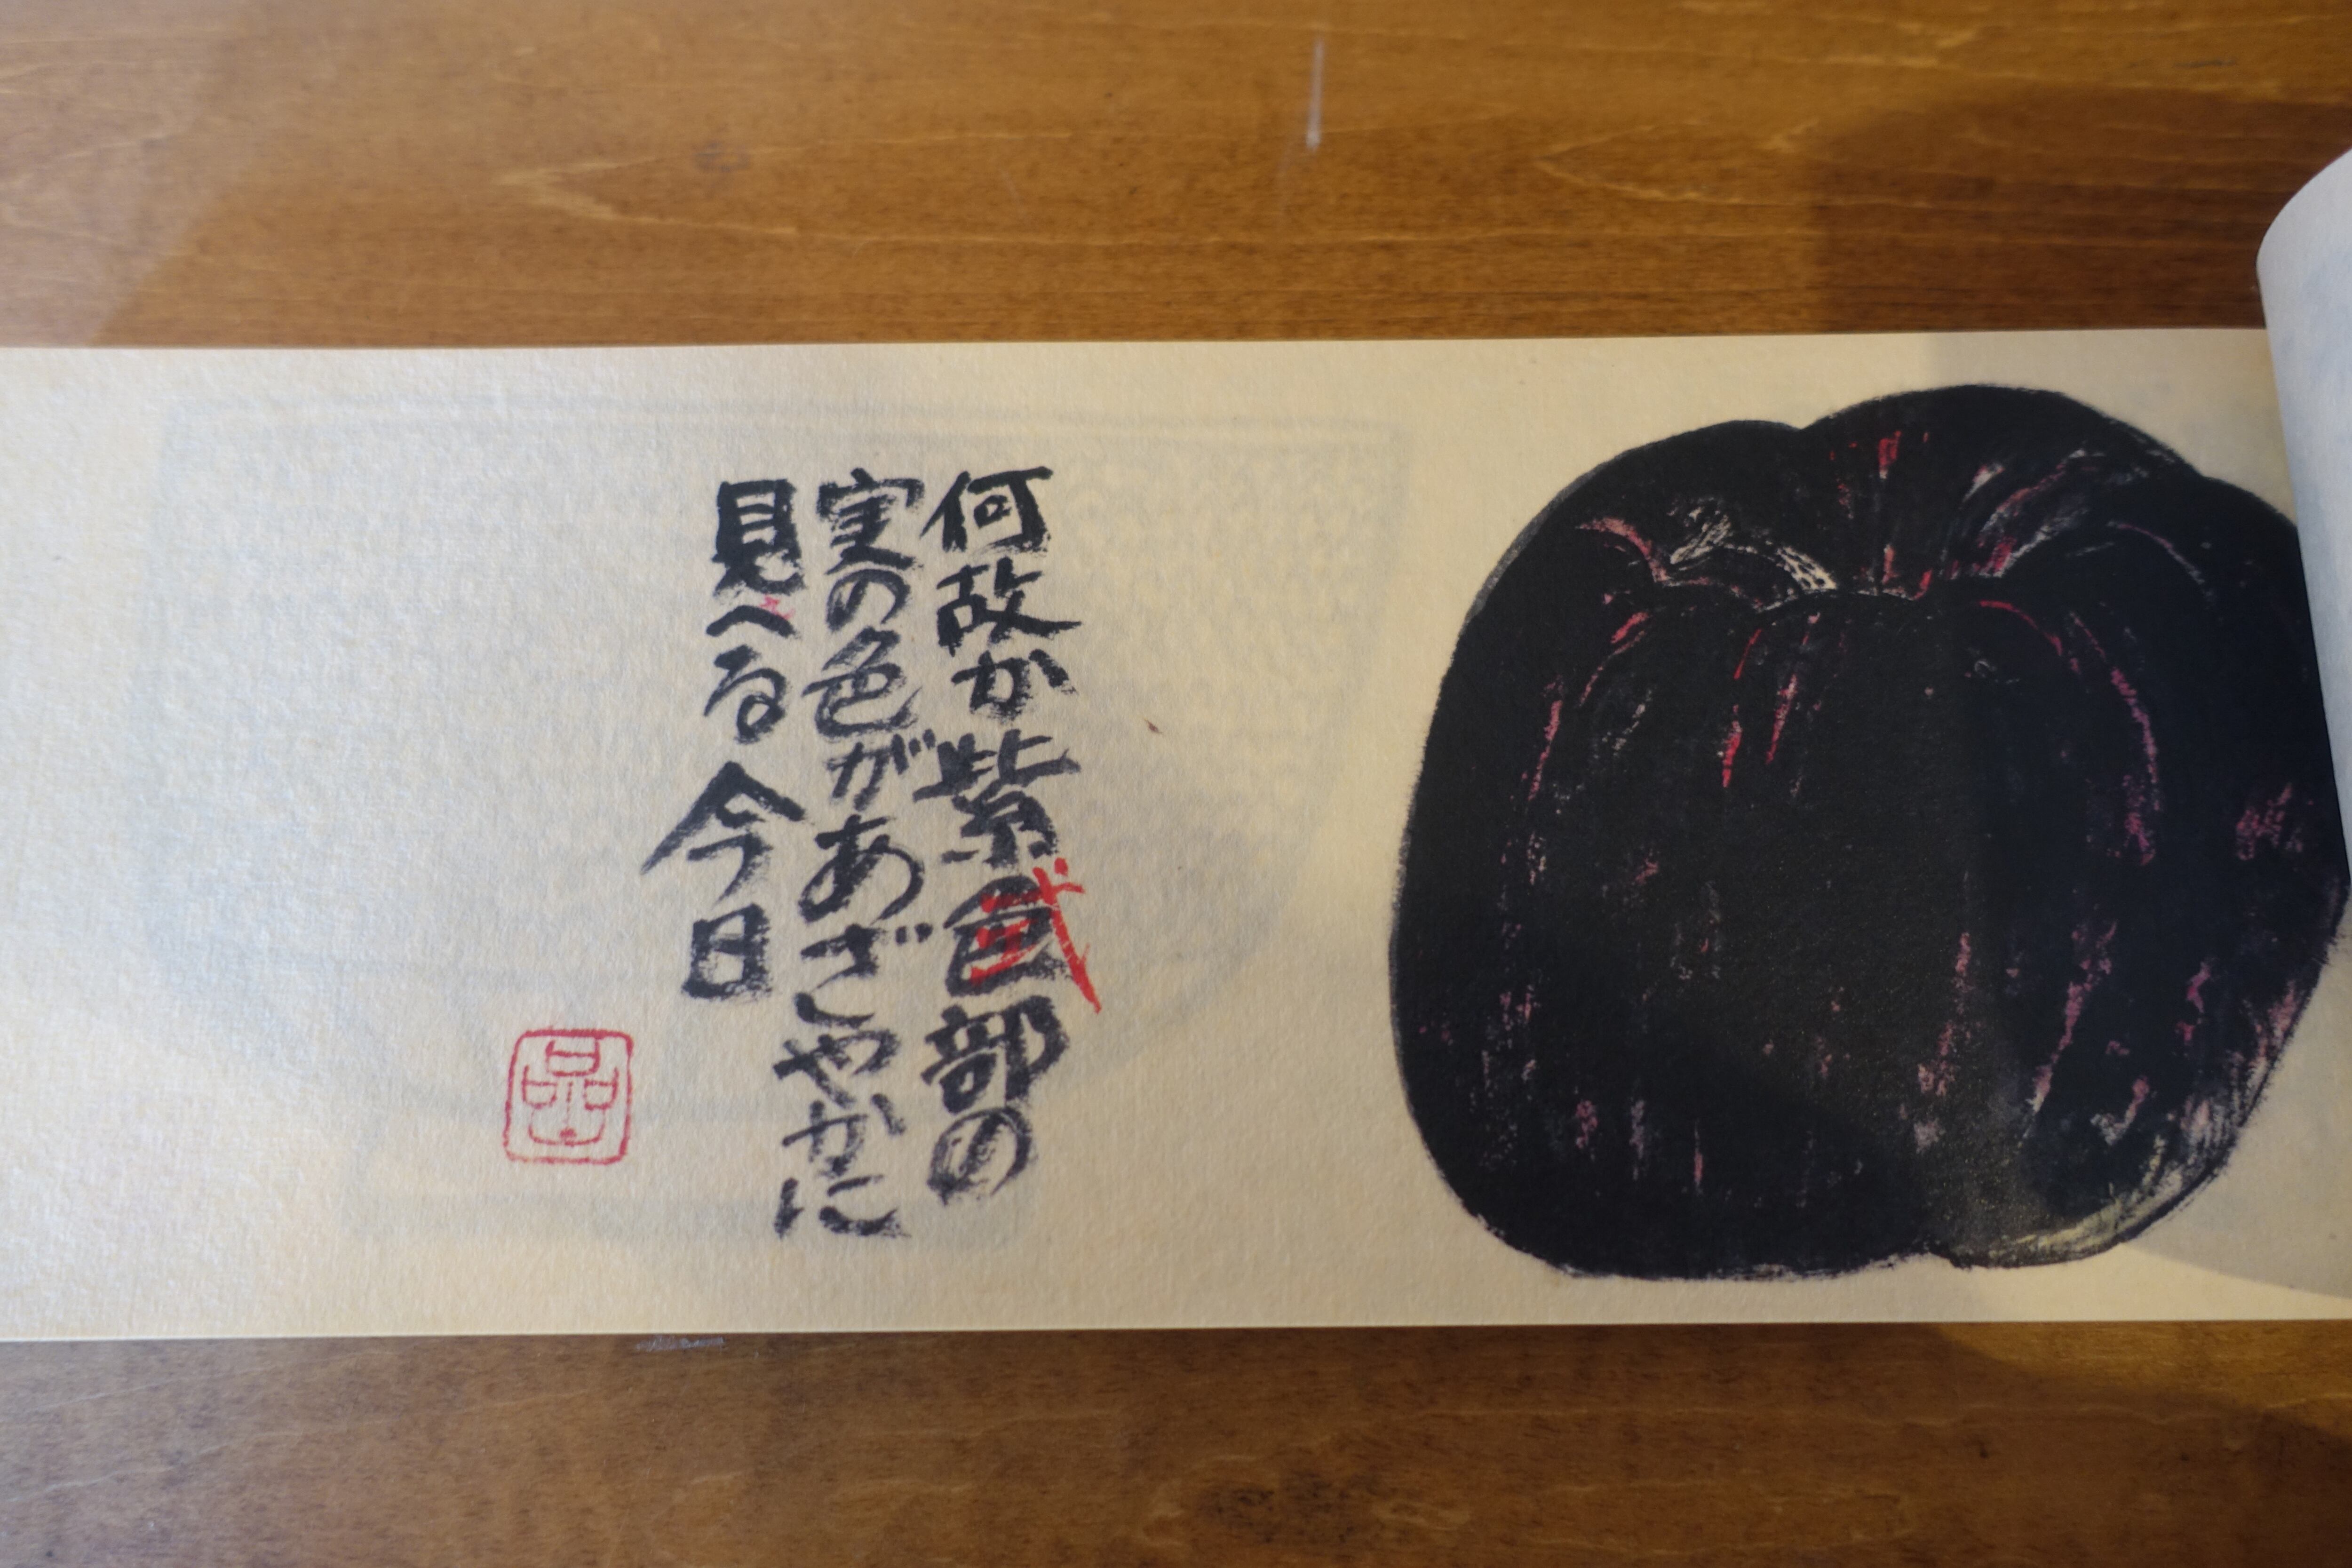 何故か紫式部の
実の色があざやかに
見へる今日